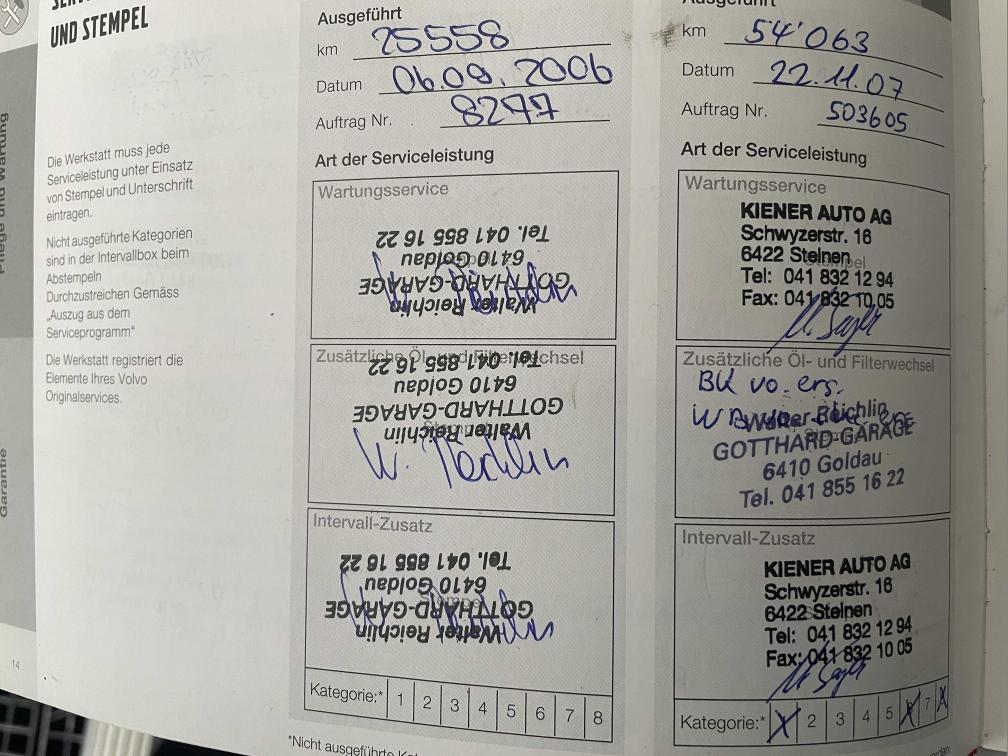 UND STEMPEL
Die Werkstatt muss jede
Serviceleistung unter Einsatz
von Stempel und Unterschrift
eintragen.
Nicht ausgeführte Kategorien
sind in der Intervallbox beim
Abstempeln
Durchzustreichen Gemäss
„Auszug aus dem
Serviceprogramm“
Die Werkstatt registriert die
Elemente Ihres Volvo
Originalservices.
14
Pflege und Wartung
Garantie
Ausgeführt
km 25558
Datum 06.09.2006
Auftrag Nr. 8277
Art der Serviceleistung
Wartungsservice
Walter Reichlin
GOTTHARD-GARAGE
6410 Goldau
Tel. 041 855 16 22
Zusätzliche Öl- und Filterwechsel
Walter Reichlin
GOTTHARD-GARAGE
6410 Goldau
Tel. 041 855 16 22
Intervall-Zusatz
Walter Reichlin
GOTTHARD-GARAGE
6410 Goldau
Tel. 041 855 16 22
Kategorie:* 1 2 3 4 5 6 7 8
*Nicht ausgeführte
Ausgeführt
km 54'063
Datum 22.11.07
Auftrag Nr. 503605
Art der Serviceleistung
Wartungsservice
KIENER AUTO AG
Schwyzerstr. 16
6422 Steinen
Tel: 041 832 12 94
Fax: 041 832 10 05
Zusätzliche Öl- und Filterwechsel
BK vo. ers.
Walter Reichlin
GOTTHARD-GARAGE
6410 Goldau
Tel. 041 855 16 22
Intervall-Zusatz
KIENER AUTO AG
Schwyzerstr. 16
6422 Steinen
Tel: 041 832 12 94
Fax: 041 832 10 05
Kategorie:* 2 3 4 5 7